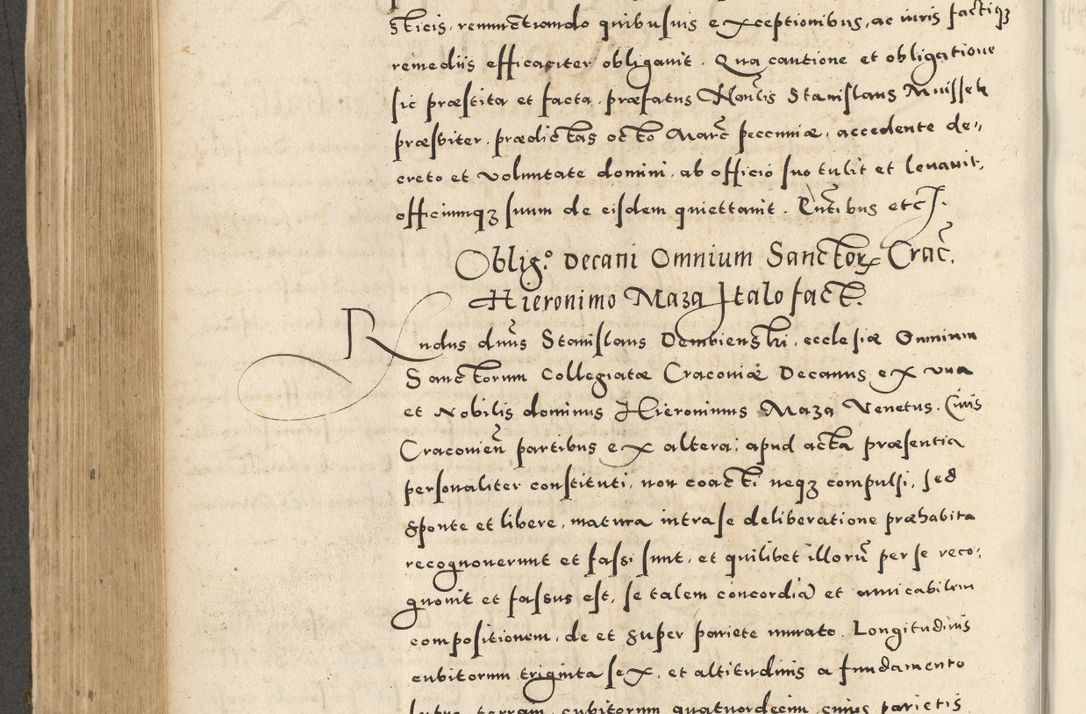 sticis, renunctiando quibusuis exceptionibus, ac iuris factiqȝ
remediis efficaciter obligauit. Qua cautione et obligatione
sic præstita et facta, præfatus Stanislaus
præsbiter, prædictas octo Marc̃ peccuniæ, accedente de„
creto et voluntate domini, ab officio suo tulit et leuauit,
officiumqȝ suum de eisdem quiettauit. etc.
Oblig.º Decani Omnium Sanctor. Crac̃.
Hieronimo Maza Italo fact.
Rndus dñus Stanislaus Dembienski, ecclesiæ Omnium
Sanctorum Collegiatæ Craconiæ Decanus, ex vna
et Nobilis dominus Hieronimus Maza Venetus. Ciuis
Craconieñ partibus ex altera; apud acta præsentia
personaliter constituti, non coacti neqȝ compulsi, sed
sponte et libere, matura intra se deliberatione præhabita
recognouerunt et fassi sunt, et quilibet illorũ per se reco„
gnouit et fassus est, se talem concordiã et amicabilem
compositionem, de et super pariete murato. Longitudinis
cubitorum triginta sex, et altitudinis a fundamento
terram, cubitorum quatuordecim, cuius parietis